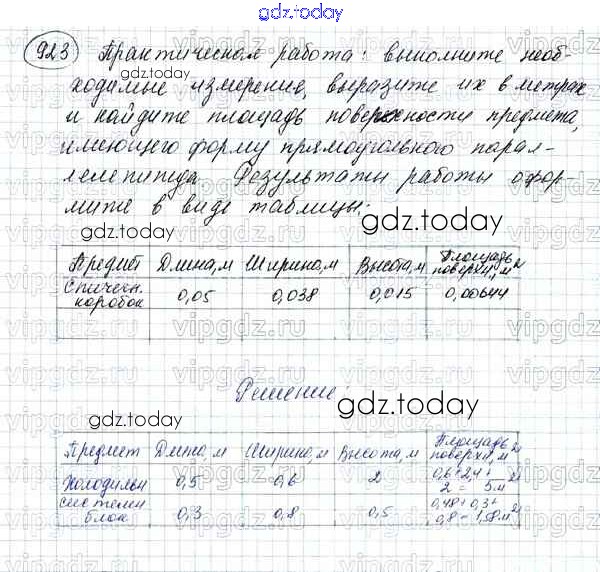 gdz.today
923 Практическая работа: выполните необ-
ходимые измерения, выразите их в метрах
и найдите площадь поверхности предмета,
имеющего форму прямоугольного парал-
лелепипеда. Результаты работы офор-
мите в виде таблицы:
gdz.today
Предмет Длина, м Ширина, м Высота, м Площадь поверхн, м²
Спичечн. коробок 0,05 0,038 0,015 0,00644
Решение:
gdz.today
gdz.today
Предмет Длина, м Ширина, м Высота, м Площадь поверхн, м²
Холодильн 0,5 0,6 2 0,6+2,4+2 = 5м²
системн блок 0,3 0,8 0,5 0,48+0,3+0,8 = 1,58м²
vipgdz.ru